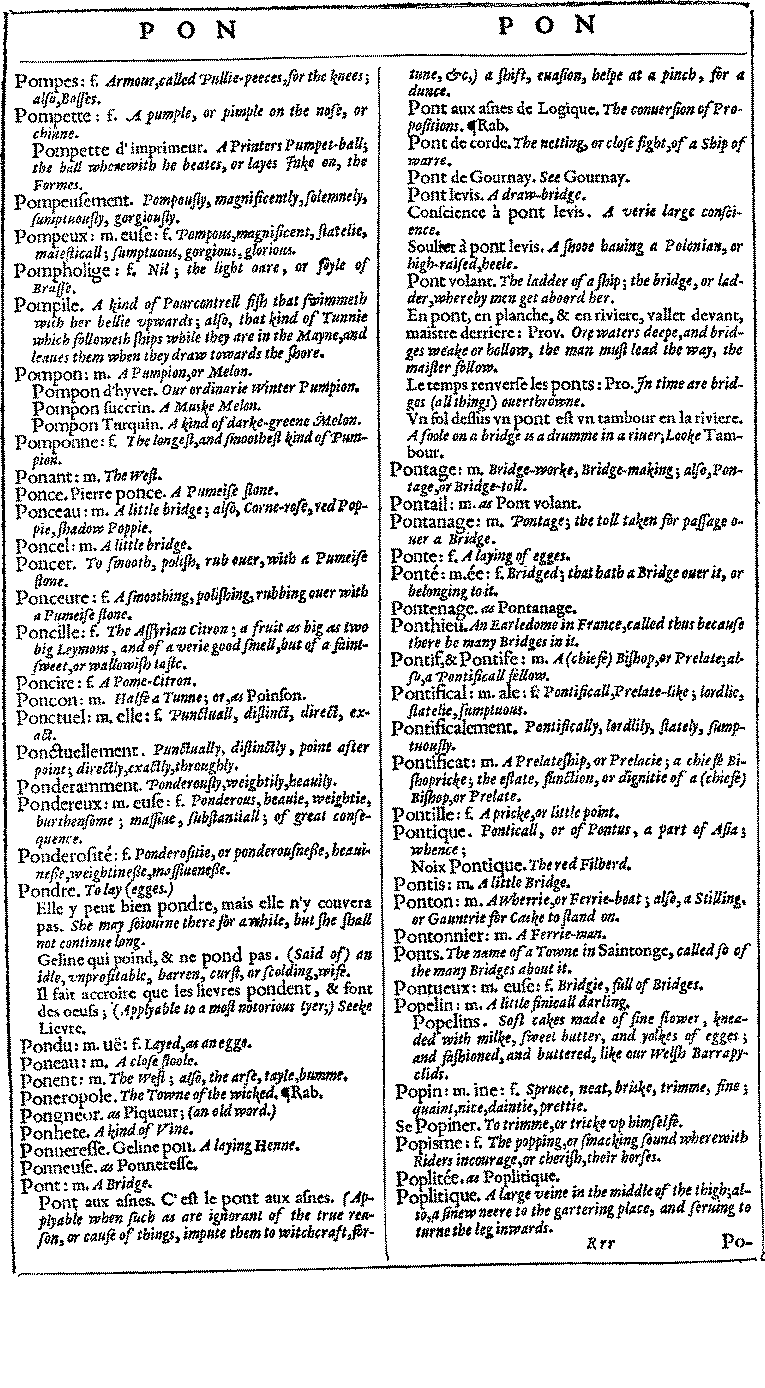 P O N
P O N
Pompes: f. Armour, called Pullie-peeces, for the knees;
also, Basses.
Pompette: f. A pumple, or pimple on the nose, or
chinne.
Pompette d'imprimeur. A Printers Pumpet-ball;
the ball wherewith he beates, or layes Inke on, the
Formes.
Pompeusement. Pompously, magnificently, solemnely,
sumptuously, gorgiously.
Pompeux: m. euse: f. Pompous, magnificent, statelie,
maiesticall; sumptuous, gorgious, glorious.
Pompholige: f. Nil; the light oare, or soyle of
Brasse.
Pompile. A kind of Pourcontrell fish that swimmeth
with her bellie vpwards; also, that kind of Tunnie
which followeth ships while they are in the Mayne, and
leaues them when they draw towards the shore.
Pompon: m. A Pumpion, or Melon.
Pompon d'hyver. Our ordinarie Winter Pumpion.
Pompon succrin. A Muske Melon.
Pompon Turquin. A kind of darke-greene Melon.
Pomponne: f. The longest, and smoothest kind of Pum-
pion.
Ponant: m. The West.
Ponce. Pierre ponce. A Pumeise stone.
Ponceau: m. A little bridge; also, Corne-rose, red Pop-
pie, shadow Poppie.
Poncel: m. A little bridge.
Poncer. To smooth, polish, rub ouer, with a Pumeise
stone.
Ponceure: f. A smoothing, polishing, rubbing ouer with
a Pumeise stone.
Poncille: f. The Assyrian Citron; a fruit as big as two
big Leymons, and of a verie good smell, but of a faint-
sweet, or wallowish taste.
Poncire: f. A Pome-Citron.
Poncon: m. Halfe a Tunne; or, as Poinson.
Ponctuel: m. elle: f. Punctuall, distinct, direct, ex-
act.
Ponctuellement. Punctually, distinctly, point after
point; directly, exactly, throughly.
Ponderamment. Ponderously, weightily, heauily.
Pondereux: m. euse: f. Ponderous, heauie, weightie,
burthensome; massiue, substantiall; of great conse-
quence.
Ponderosité: f. Ponderositie, or ponderousnesse, heaui-
nesse, weightinesse, massiuenesse.
Pondre. To lay (egges.)
Elle y peut bien pondre, mais elle n'y couvera
pas. She may soiourne there for a while, but she shall
not continue long.
Geline qui poind, & ne pond pas. (Said of) an
idle, vnprofitable, barren, curst, or scolding, wife.
Il fait accroire que les lievres pondent, & font
des oeufs; (Applyable to a most notorious lyer;) Seeke
Lievre.
Pondu: m. uë: f. Layed, as an egge.
Poneau: m. A close stoole.
Ponent: m. The West; also, the arse, tayle, bumme.
Poneropole. The Towne of the wicked. ¶Rab.
Pongneur. as Piqueur; (an old word.)
Ponhete. A kind of Vine.
Ponneresse. Geline pon. A laying Henne.
Ponneuse. as Ponneresse.
Pont: m. A Bridge.
Pont aux asnes. C'est le pont aux asnes. (Ap-
plyable when such as are ignorant of the true rea-
son, or cause of things, impute them to witchcraft, for-
tune, &c,) a shift, euasion, helpe at a pinch, for a
dunce.
Pont aux asnes de Logique. The conuersion of Pro-
positions. ¶Rab.
Pont de corde. The netting, or close fight, of a Ship of
warre.
Pont de Gournay. See Gournay.
Pont levis. A draw-bridge.
Conscience à pont levis. A verie large consci-
ence.
Soulier à pont levis. A shooe hauing a Polonian, or
high-raised, heele.
Pont volant. The ladder of a ship; the bridge, or lad-
der, whereby men get aboord her.
En pont, en planche, & en riviere, vallet devant,
maistre derriere: Prov. Ore waters deepe, and brid-
ges weake or hollow, the man must lead the way, the
maister follow.
Le temps renverse les ponts: Pro. In time are brid-
ges (all things) ouerthrowne.
Vn fol dessus vn pont est vn tambour en la riviere.
A foole on a bridge is a drumme in a riuer; Looke Tam-
bour.
Pontage: m. Bridge-worke, Bridge-making; also, Pon-
tage, or Bridge-toll.
Pontail: m. as Pont volant.
Pontanage: m. Pontage; the toll taken for passage o-
uer a Bridge.
Ponte: f. A laying of egges.
Ponté: m. ée: f. Bridged; that hath a Bridge ouer it, or
belonging to it.
Pontenage. as Pontanage.
Ponthieu. An Earledome in France, called thus because
there be many Bridges in it.
Pontif, & Pontife: m. A (chiefe) Bishop, or Prelate; al-
so, a Pontificall fellow.
Pontifical: m. ale: f. Pontificall, Prelate-like; lordlie,
statelie, sumptuous.
Pontificalement. Pontifically, lordlily, stately, sump-
tuously.
Pontificat: m. A Prelateship, or Prelacie; a chiefe Bi-
shopricke; the estate, function, or dignitie of a (chiefe)
Bishop, or Prelate.
Pontille: f. A pricke, or little point.
Pontique. Ponticall, or of Pontus, a part of Asia;
whence;
Noix Pontique. The red Filberd.
Pontis: m. A little Bridge.
Ponton: m. A wherrie, or Ferrie-boat; also, a Stilling,
or Gauntrie for Caske to stand on.
Pontonnier: m. A Ferrie-man.
Ponts. The name of a Towne in Saintonge, called so of
the many Bridges about it.
Pontueux: m. euse: f. Bridgie, full of Bridges.
Popelin: m. A little finicall darling.
Popelins. Soft cakes made of fine flower, knea-
ded with milke, sweet butter, and yolkes of egges;
and fashioned, and buttered, like our Welsh Barrapy-
clids.
Popin: m. ine: f. Spruce, neat, briske, trimme, fine;
quaint, nice, daintie, prettie.
Se Popiner. To trimme, or tricke vp himselfe.
Popisme: f. The popping, or smacking sound wherewith
Riders incourage, or cherish, their horses.
Poplitée. as Poplitique.
Poplitique. A large veine in the middle of the thigh; al-
so, a sinew neere to the gartering place, and seruing to
turne the leg inwards.
Rrr
Po-